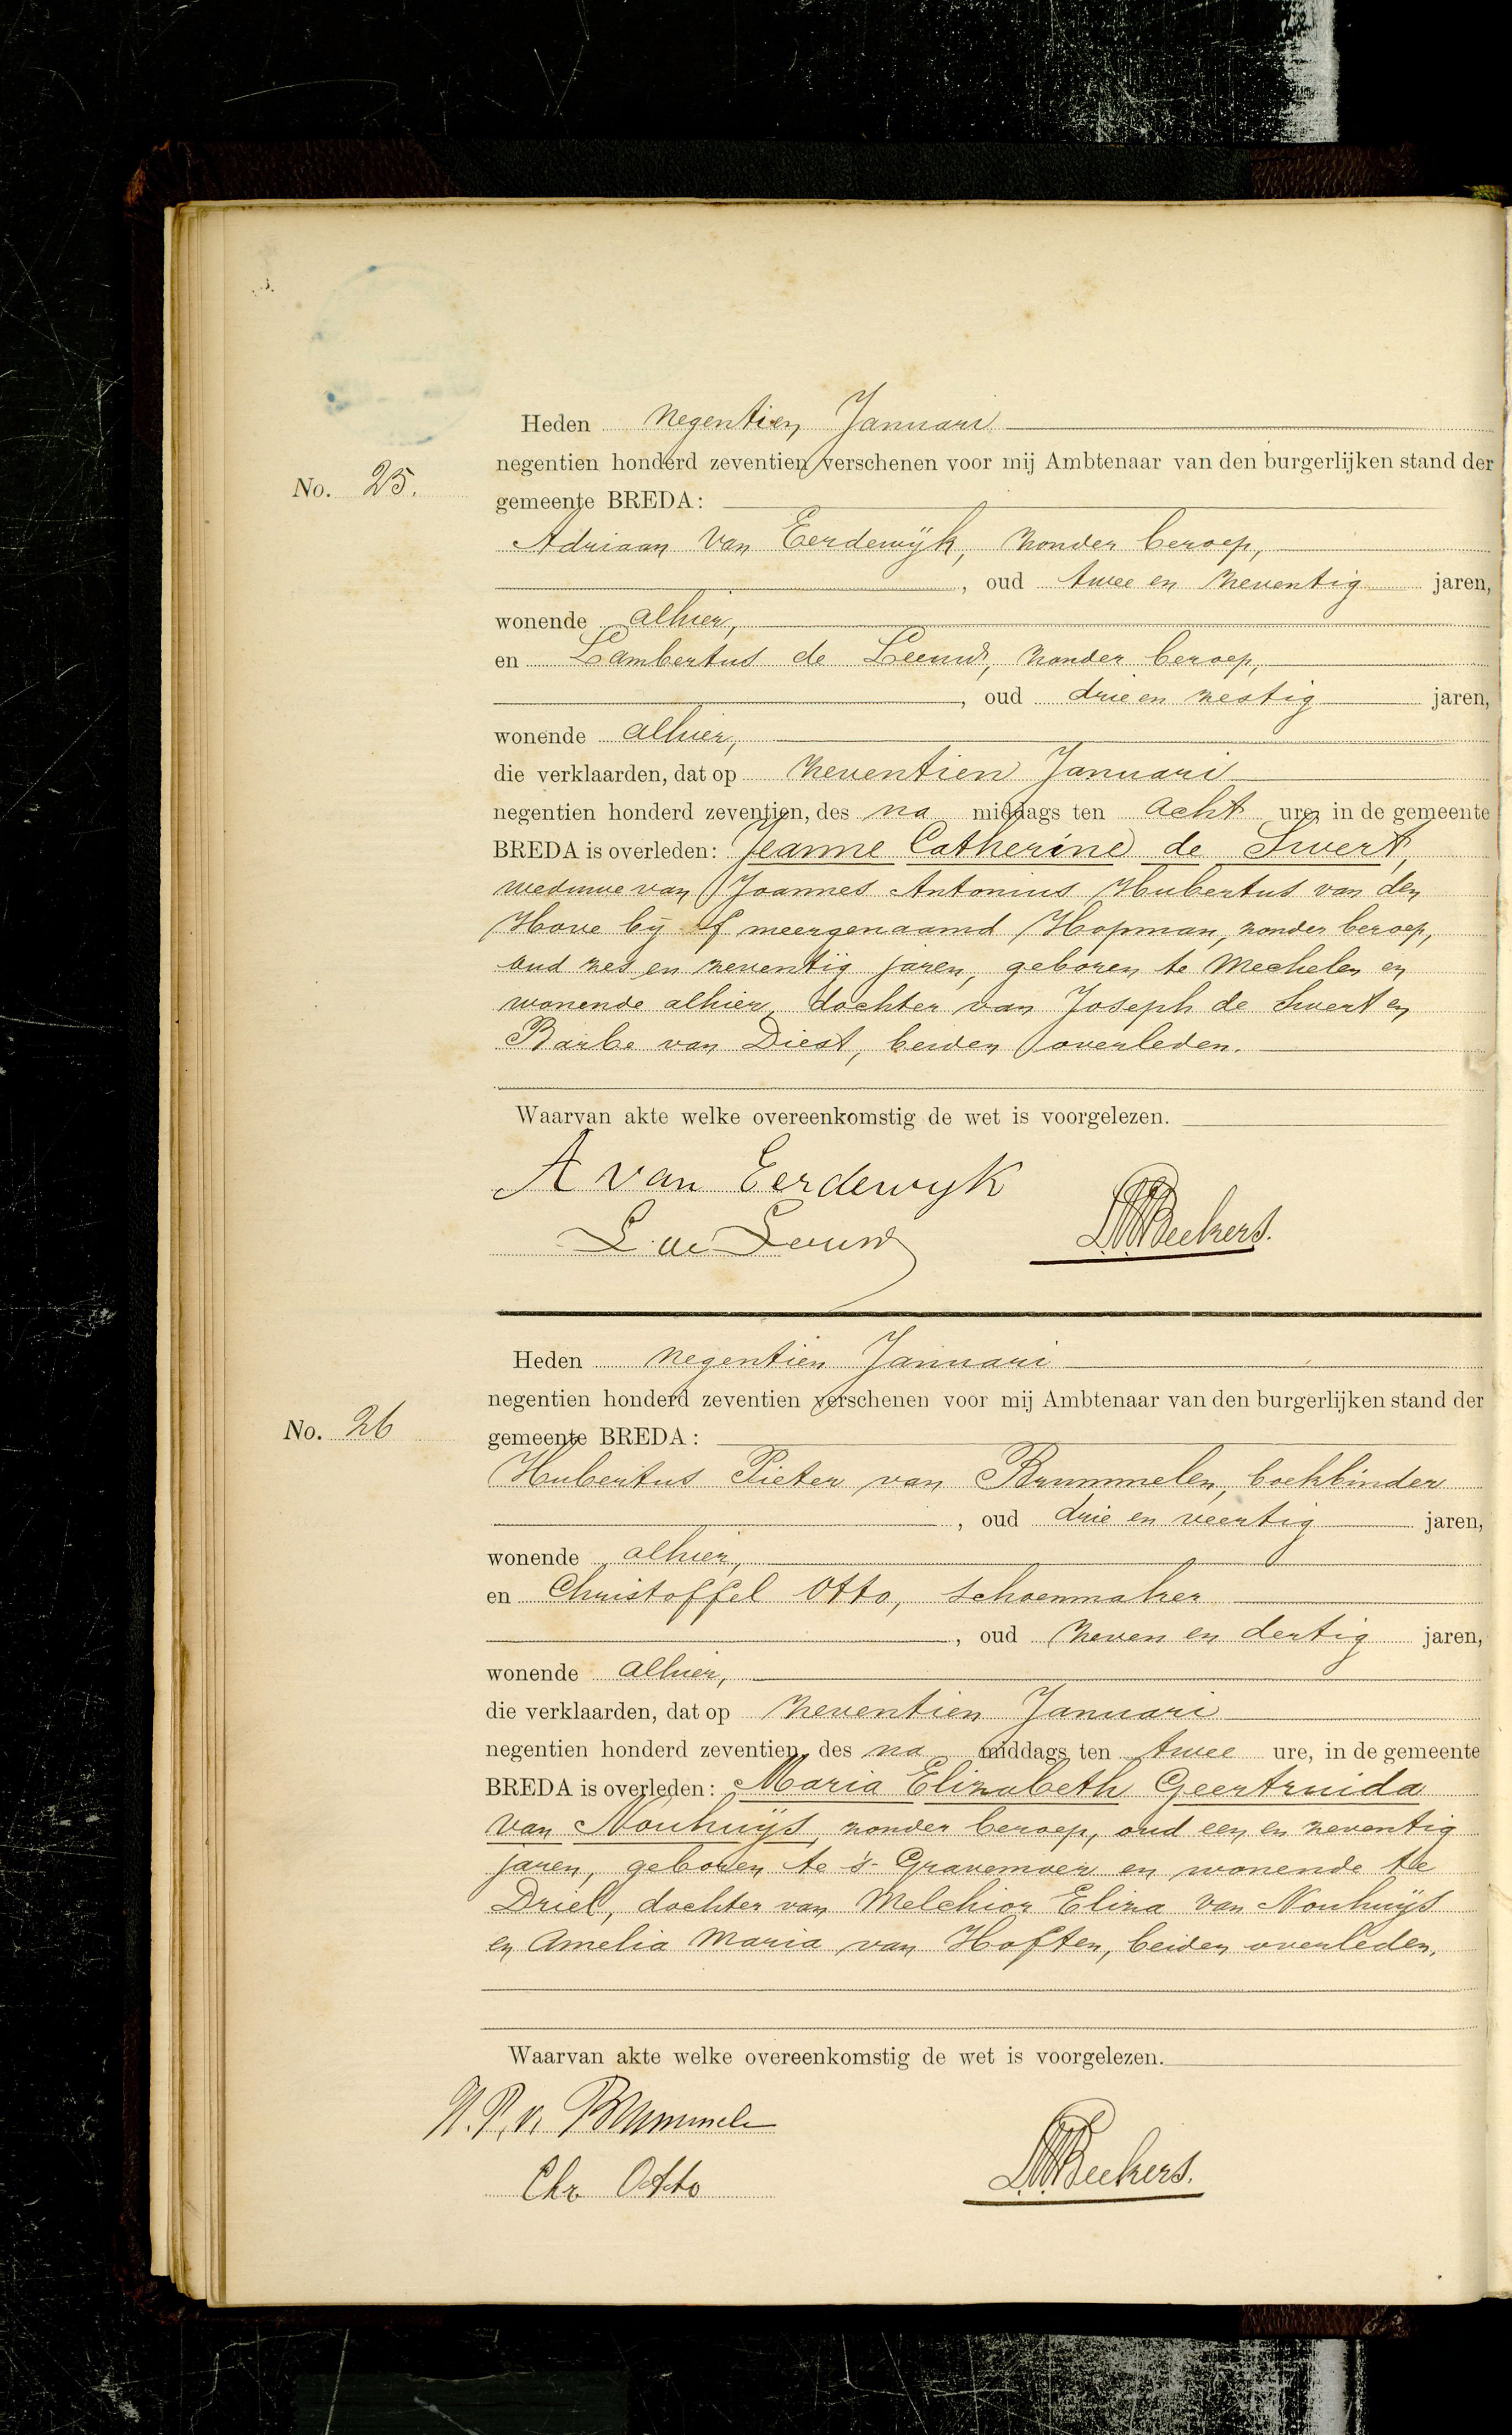 Heden negentien Januari
negentien honderd zeventien verschenen voor mij Ambtenaar van den burgerlijken stand der
No. 25.
gemeente BREDA:
Adriaan van Eerdewijk, zonder beroep,
, oud twee en zeventig jaren,
wonende alhier,
en Lambertus de Leeuw, zonder beroep,
, oud drie en zestig jaren,
wonende alhier,
die verklaarden, dat op zeventien Januari
negentien honderd zeventien, des na middags ten acht ure, in de gemeente
BREDA is overleden: Jeanne Catherine de Swert,
weduwe van Joannes Antonius Hubertus van den
Hove bij of meergenaamd Hopman, zonder beroep,
oud zes en zeventig jaren, geboren te Mechelen en
wonende alhier, dochter van Joseph de Swert en
Barbe van Diest, beiden overleden.
Waarvan akte welke overeenkomstig de wet is voorgelezen.
A van Eerdewyk
L de Leeuw
Beekers.
Heden negentien Januari
negentien honderd zeventien verschenen voor mij Ambtenaar van den burgerlijken stand der
No. 26
gemeente BREDA:
Hubertus Pieter van Brummelen, boekbinder
, oud drie en veertig jaren,
wonende alhier,
en Christoffel Otto, schoenmaker
, oud zeven en dertig jaren,
wonende alhier,
die verklaarden, dat op zeventien Januari
negentien honderd zeventien, des na middags ten twee ure, in de gemeente
BREDA is overleden: Maria Elizabeth Geertruida
van Nouhuijs, zonder beroep, oud een en zeventig
jaren, geboren te 's-Gravemoer en wonende te
Driel, dochter van Melchior Eliza van Nouhuijs
en Amelia Maria van Hoften, beiden overleden.
Waarvan akte welke overeenkomstig de wet is voorgelezen.
H. P. v. Brummele
Chr Otto
Beekers.